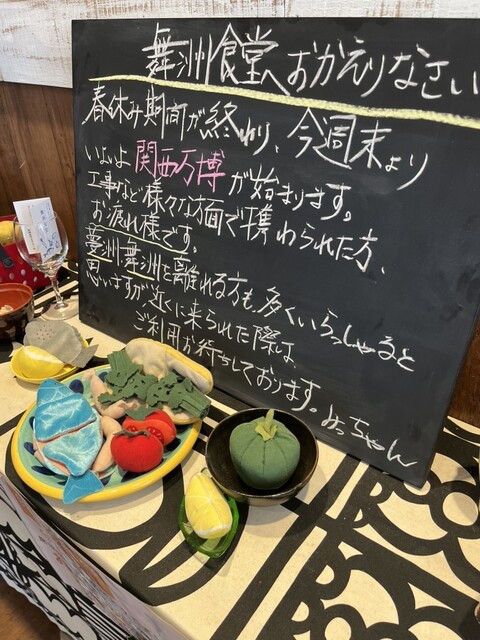 舞洲食堂へおかえりなさい
春休み期間が終わり、今週末より
いよいよ関西万博が始まります。
工事など様々な方面で携わられた方、
お疲れ様です。
夢洲・舞洲を離れる方も、多くいらっしゃると
思いますが近くに来られた際は、
ご利用お待ちしております。みっちゃん